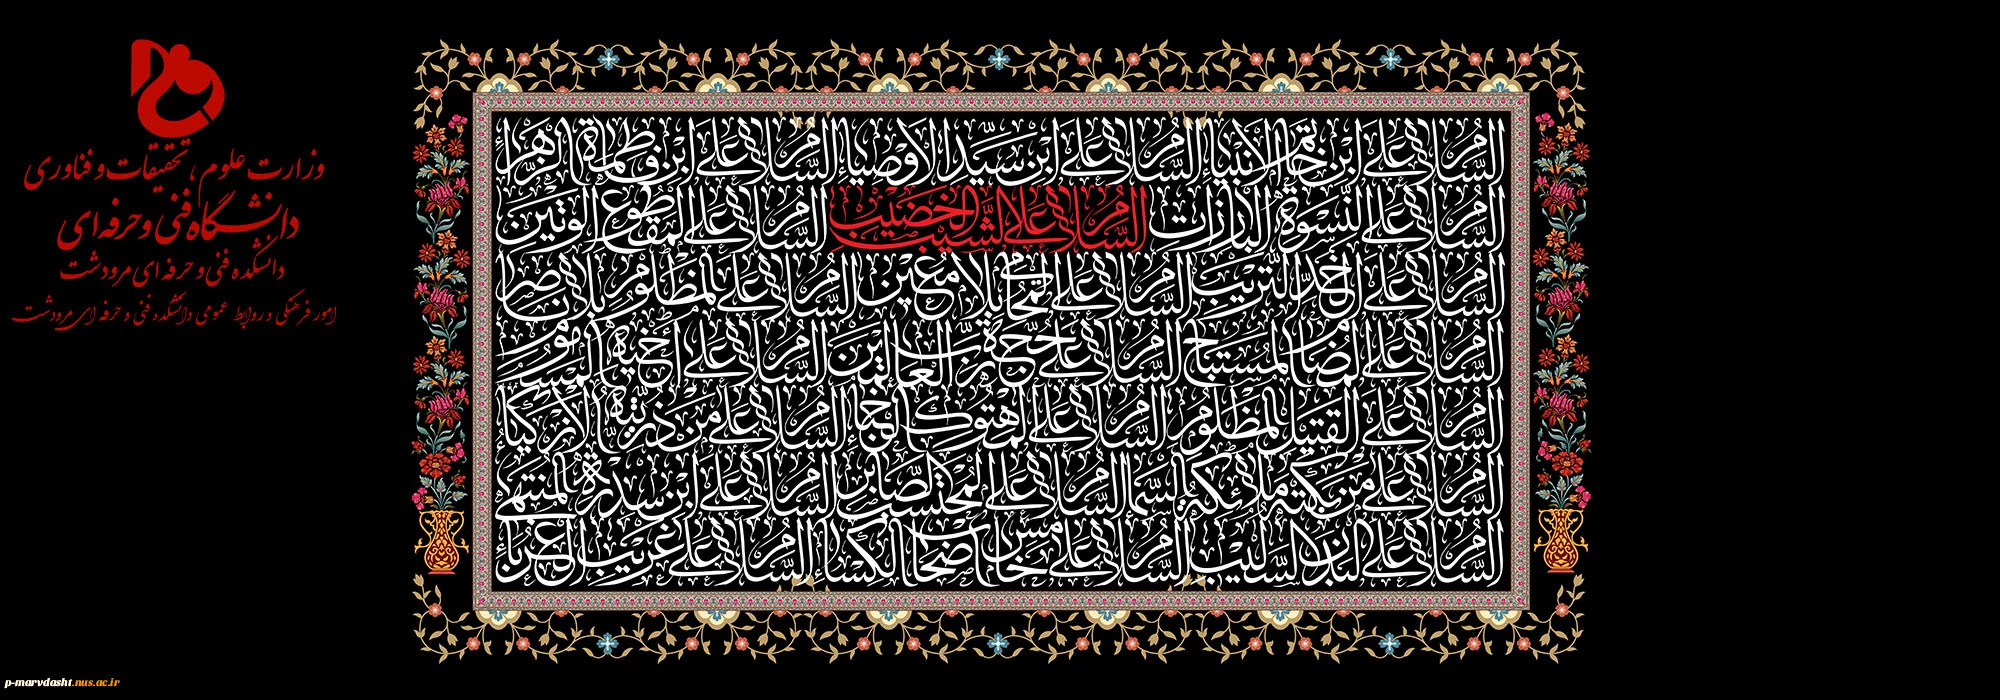 وزارت علوم، تحقیقات و فناوری
دانشگاه فنی و حرفه ای
دانشکده فنی و حرفه ای مرودشت
امور فرهنگی و روابط عمومی دانشکده فنی و حرفه ای مرودشت
السلام على ابن خاتم الانبياء السلام على ابن سيد الاوصياء السلام على ابن فاطمة الزهراء
السلام على النسوة البارزات السلام على الشيب الخضيب السلام على المقطوع الوتين
السلام على الخد التريب السلام على المحامي بلا معين السلام على المظلوم بلا ناصر
السلام على المضام المستباح السلام على حجة رب العالمين السلام على أخيه المسموم
السلام على القتيل المظلوم السلام على المهتوك الخباء السلام على من ذريته الأزكياء
السلام على من بكته ملائكة السماء السلام على المحتسب الصابر السلام على ابن سدرة المنتهى
السلام على البدن السليب السلام على خامس اصحاب الكساء السلام على غريب الغرباء
p-marvdasht.nus.ac.ir